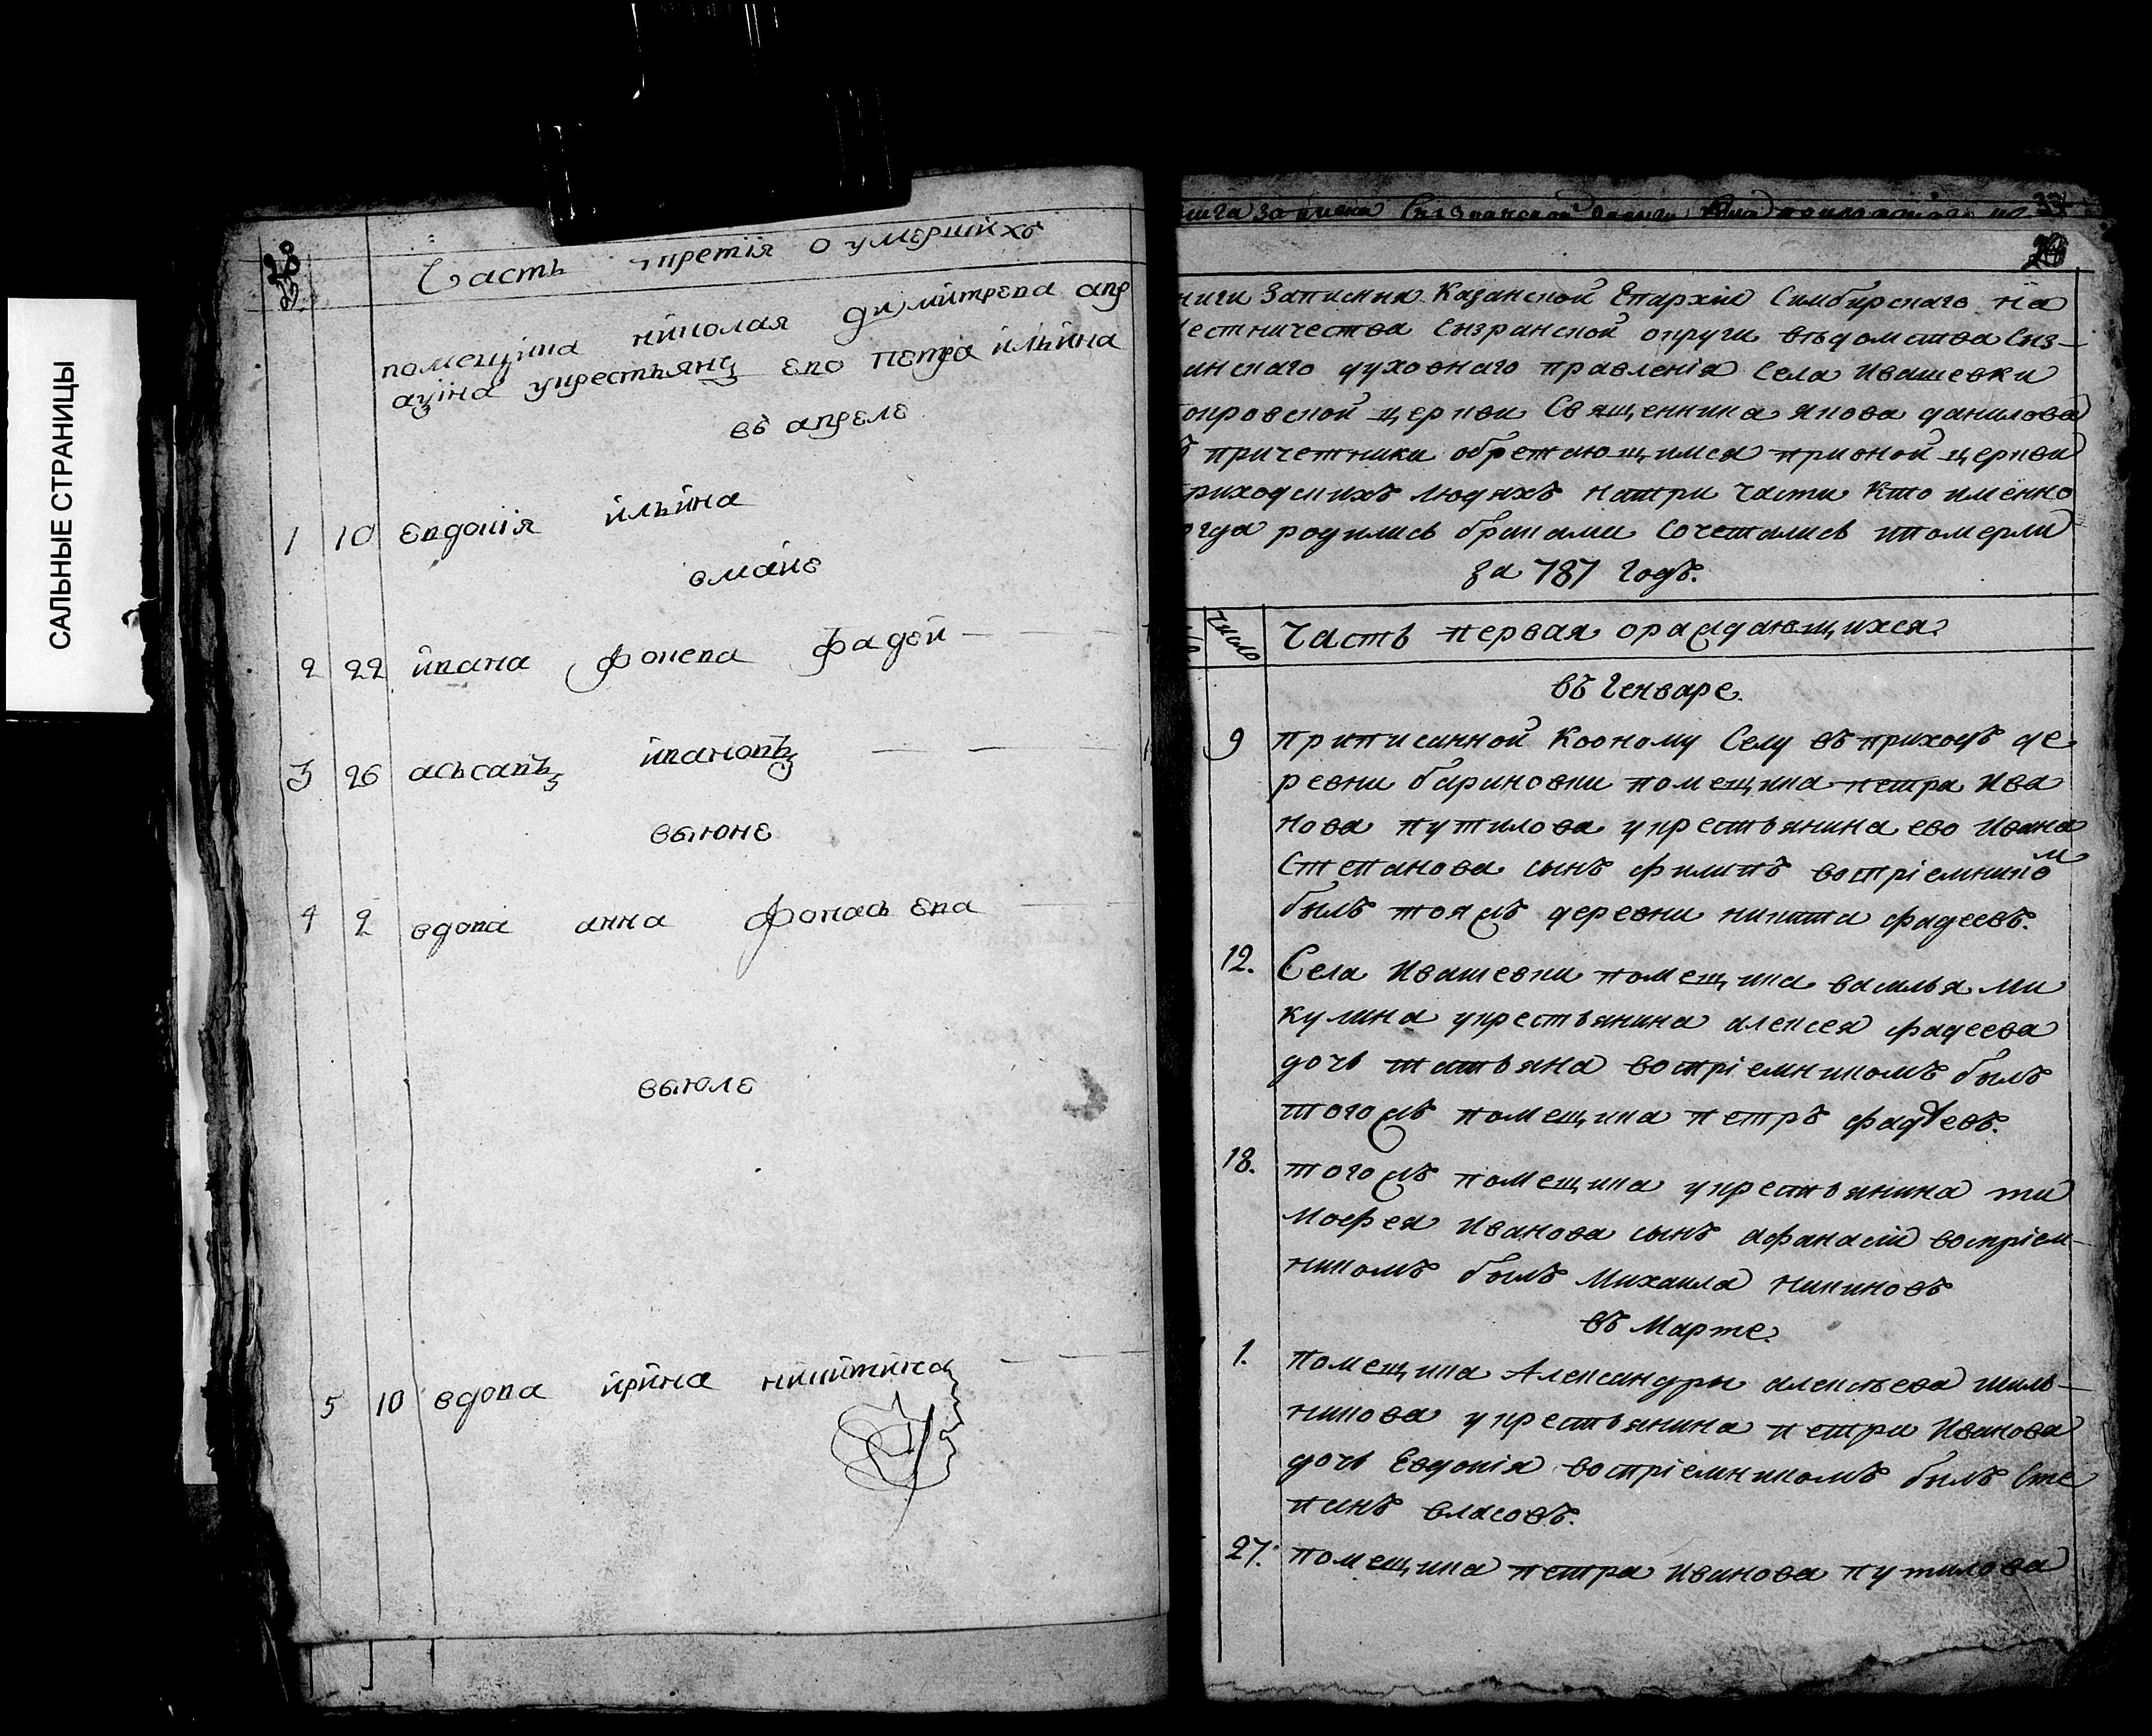 САЛЬНЫЕ СТРАНИЦЫ
28
Часть третiя о умершихъ
помещика николая димитрева
укрестьянъ ево петра ильина
въ апреле
1 10 евдокiя ильина
вмаiе
2 22 ивана фокева фадей
3 26 ивановъ
выюне
4 2 вдова анна фонасьева
выюле
5 10 вдова ирина никитина
ниги записная Казанской Епархiи Симбирскаго На
естничества Сызранской округи ведомства Сыз-
анскаго духовнаго правленiя Села Ивашевки
окровской церкви Священника якова данилова
причетники обретающимся прионой церкви
риходскихъ людяхъ натри части кто именно
огда родились браками Сочетались ипомерли
за 787 Годъ.
число Часть первая ораждающихся.
въ Генваре.
9 приписанной коономy Селу въ приходъ де
ревни бариновки помещика петра Ива
нова путилова укрестьянина ево Ивана
Степанова сынъ филипъ воспрiемникомъ
былъ тояжъ деревни никита фадеевъ.
12. Села Ивашевки помещика василья Ми
кулина укрестьянина алексея фадеева
дочь татьяна воспрiемникомъ былъ
тогожъ помещика петръ фадѣевъ.
18. тогожъ помещика укрестьянина ти
мофея Иванова сынъ афанасiи воспрiем-
никомъ былъ Михаила никиновъ
въ Марте.
1. помещика Александры алексъева шиль-
никова укрестьянина петра Иванова
дочь Евдокiя воспрiемникомъ былъ Сте
панъ власовъ.
27. помещика петра Иванова путилова